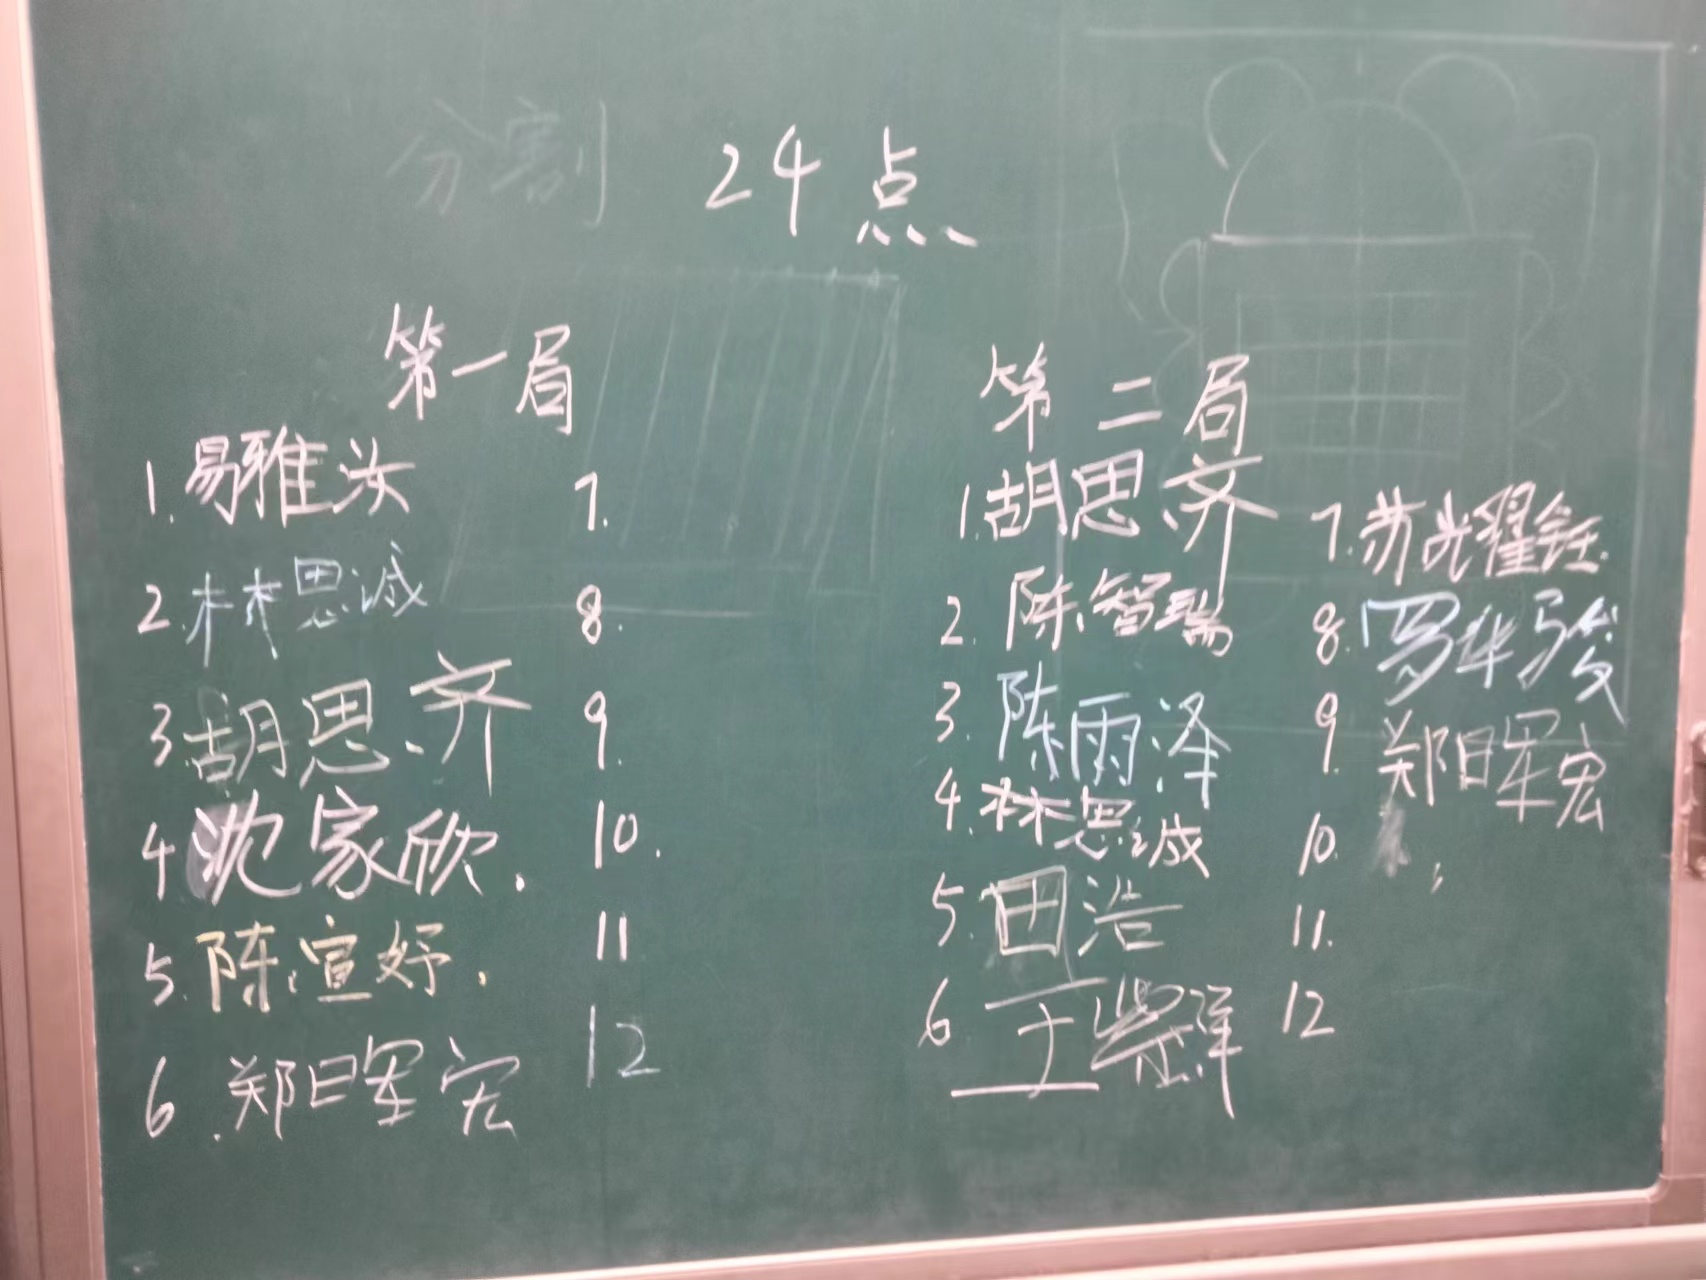 分割 24点
第一局
1. 易雅汝
2. 林思诚
3. 胡思齐
4 沈家欣.
5. 陈宣妤.
6. 郑日军宏
7.
8.
9.
10.
11
12
第二局
1. 胡思齐
2. 陈智瑞
3. 陈雨泽
4. 林思诚
5. 田浩
6. 王紫泽
7. 苏光耀钰
8. 罗华骏
9. 郑日军宏
10.
11.
12